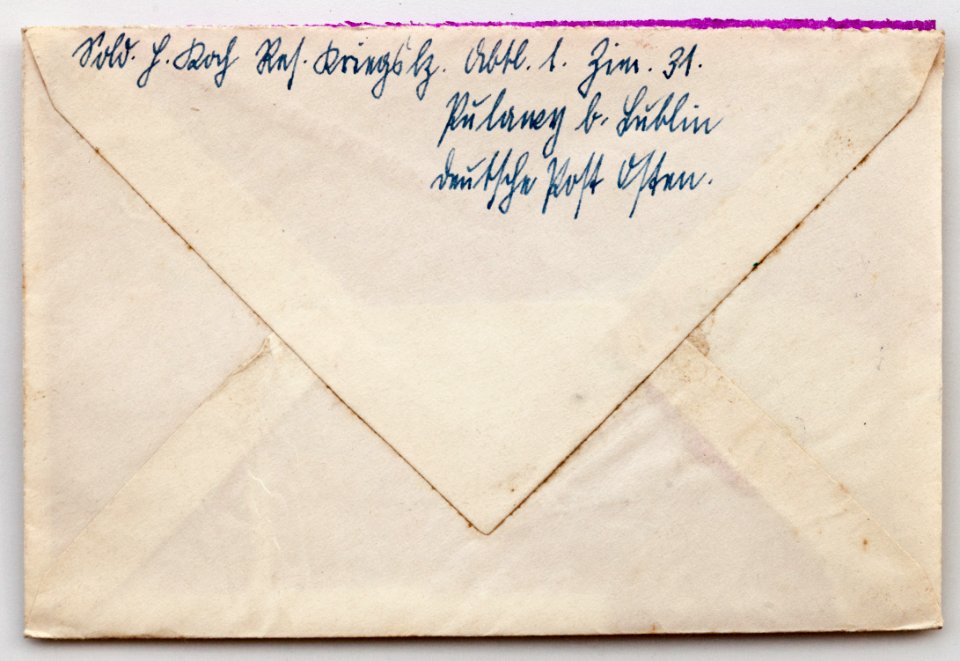 Sold. H. Koch Res. Kriegslz. Abtl. 1. Zim. 31.
Pulawy b. Lublin
Deutsche Post Osten.